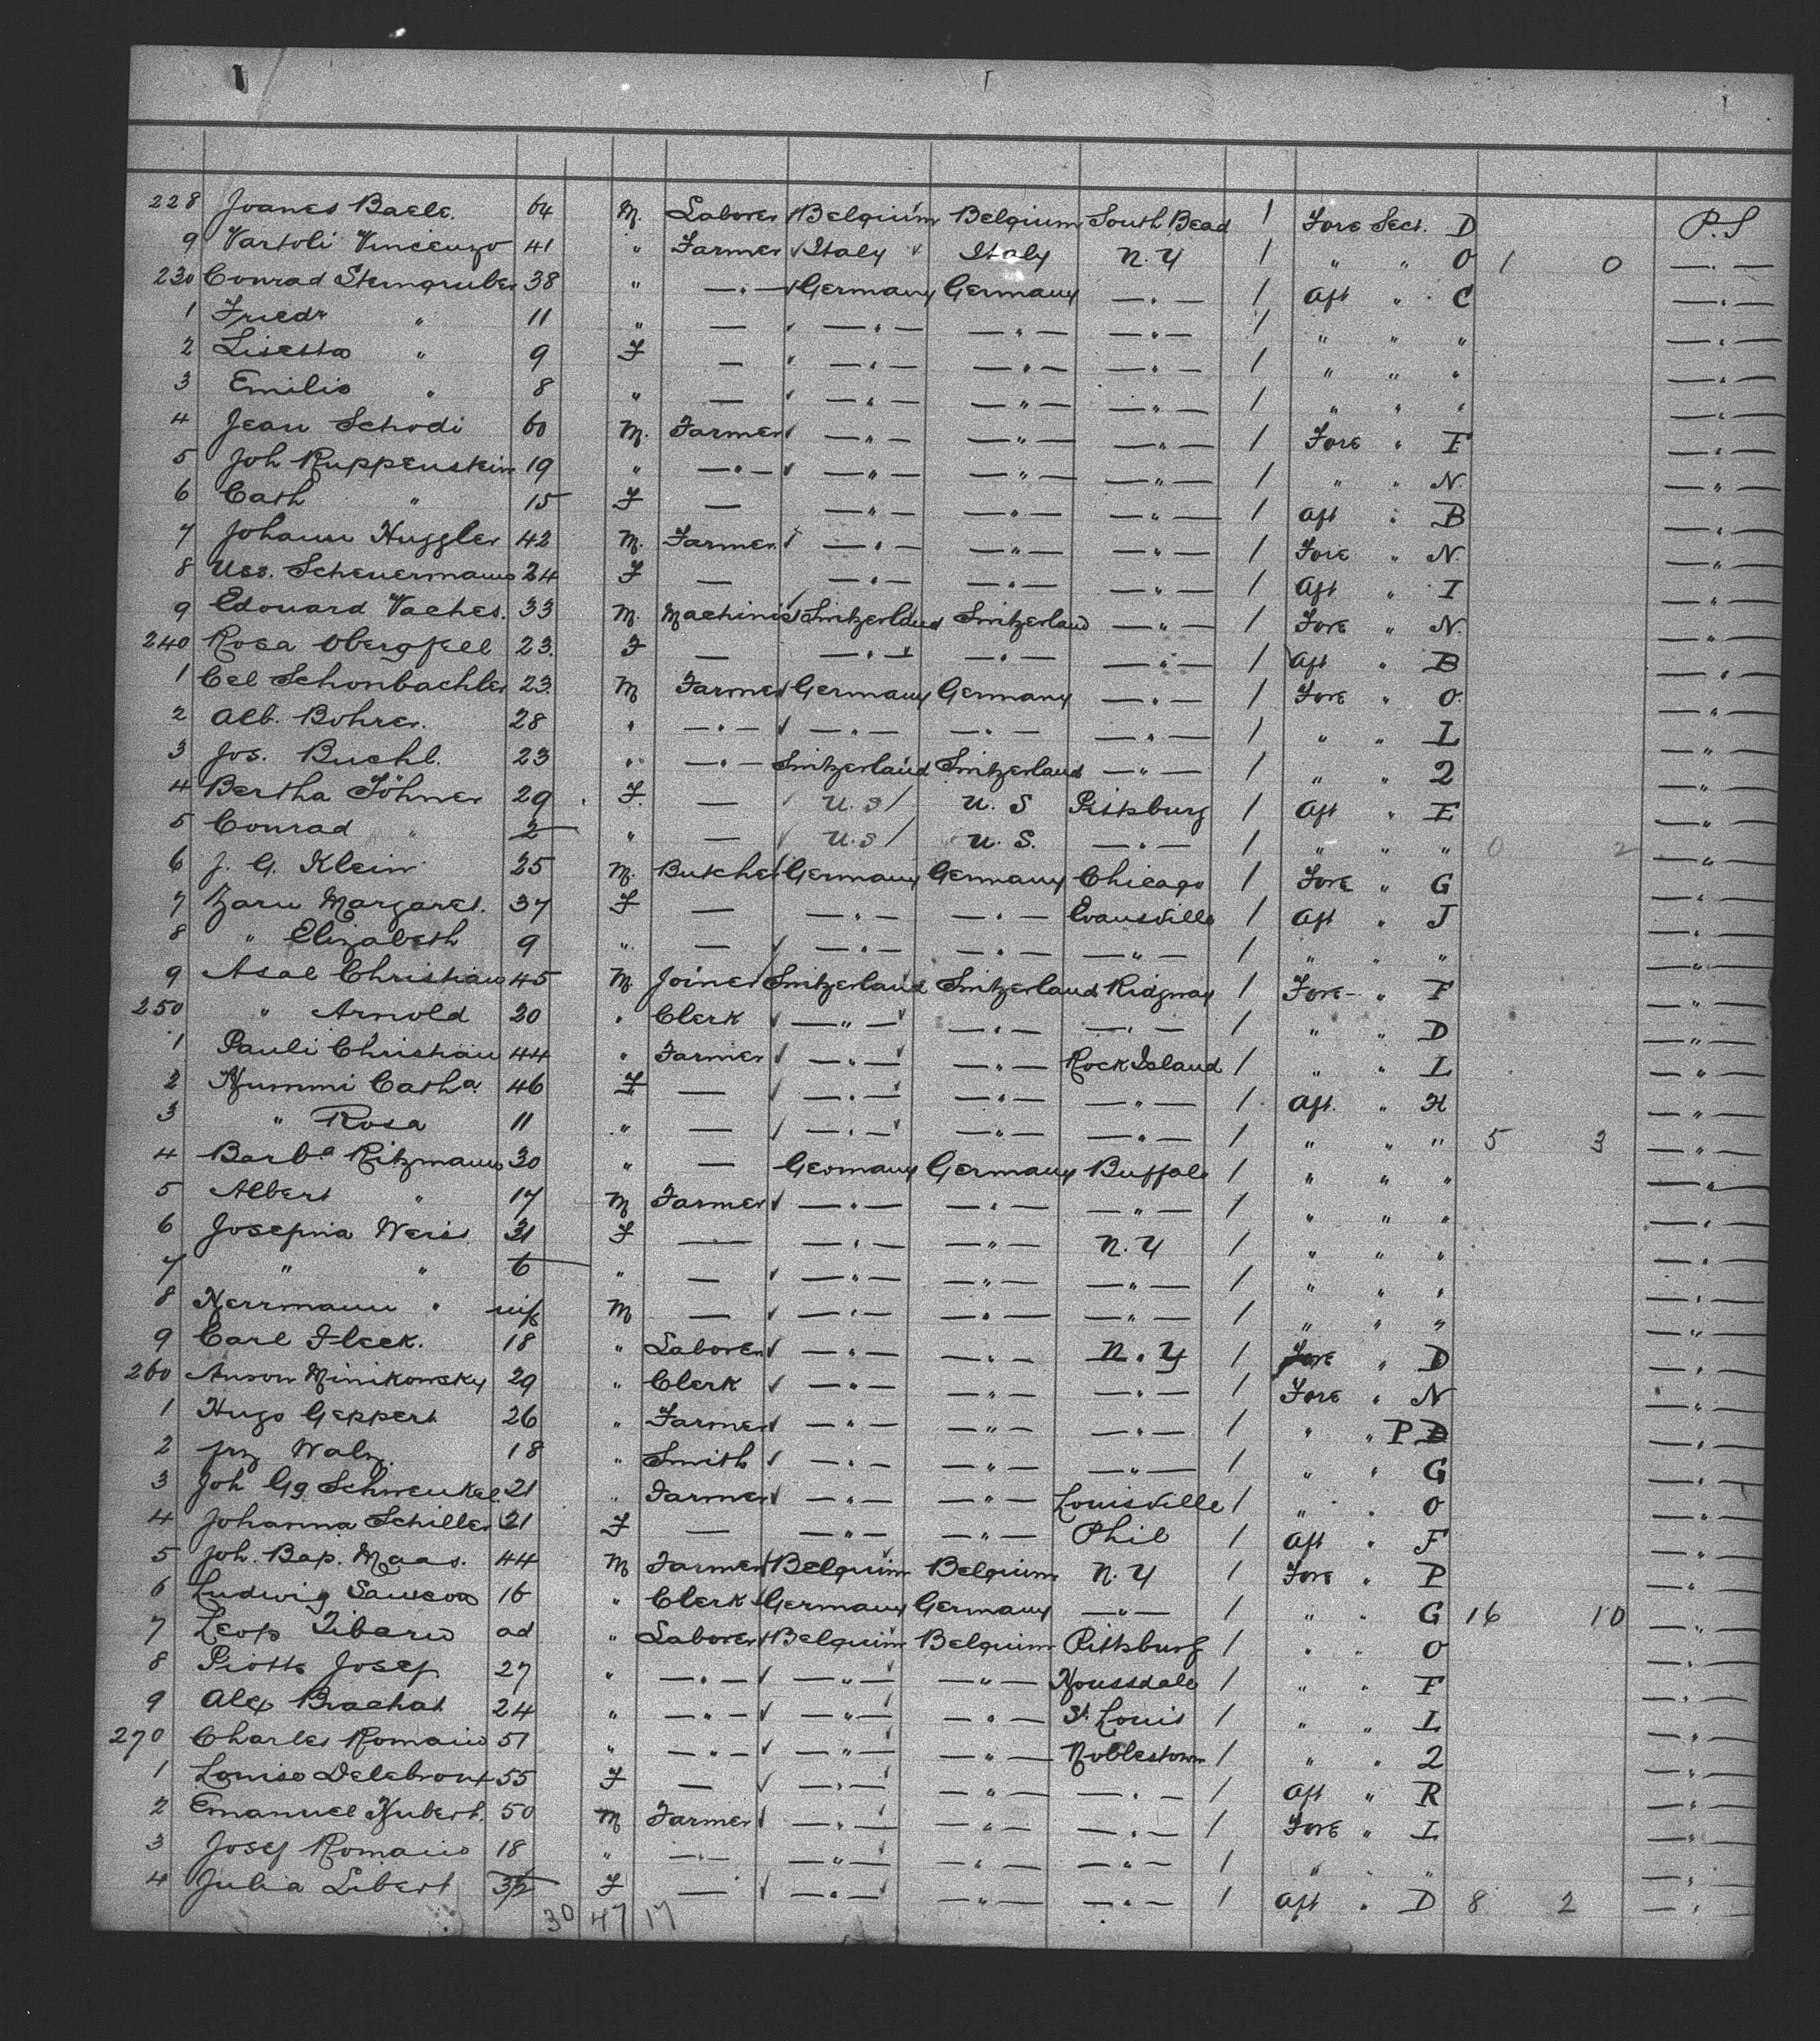 228 Joanes Baele. 64 M. Laborer Belgium Belgium South Bead 1 Fore Sect. D P.S
9 Vartoli Vincenzo 41 " Farmer Italy Italy N.Y 1 " " O 1 0 —"—
230 Conrad Sterngruber 38 " —"— Germany Germany —"— 1 Aft " C —"—
1 Friedr " 11 " — —"— —"— —"— 1 " " " —"—
2 Lisetta " 9 F — —"— —"— —"— 1 " " " —"—
3 Emilie " 8 " — —"— —"— —"— 1 " " " —"—
4 Jean Schodi 60 M. Farmer —"— —"— —"— 1 Fore " F —"—
5 Joh Ruppenstein 19 " —"— —"— —"— —"— 1 " " N. —"—
6 Cath " 15 F — —"— —"— —"— 1 Aft " B —"—
7 Johann Huggler 42 M. Farmer —"— —"— —"— 1 Fore " N. —"—
8 Scheuermann 24 F — —"— —"— —"— 1 Aft " I —"—
9 Edouard Vaches. 33 M. Machinist Switzerland Switzerland —"— 1 Fore " N. —"—
240 Rosa Obergfell 23. F — —"— —"— —"— 1 Aft " B —"—
1 Cel Schonbachler 23. M Farmer Germany Germany —"— 1 Fore " O. —"—
2 Alb. Bohrer. 28 " —"— —"— —"— —"— 1 " " L —"—
3 Jos. Buchl. 23 " —"— Switzerland Switzerland —"— 1 " " 2 —"—
4 Bertha Töhner 29 F. — U.S U.S Pittsburg 1 Aft " E —"—
5 Conrad " 2 " — U.S U.S. —"— 1 " " " 0 2 —"—
6 J. G. Klein 25 M. Butcher Germany Germany Chicago 1 Fore " G —"—
7 Zaru Margaret. 37 F — —"— —"— Evansville 1 Aft " J —"—
8 " Elizabeth 9 " — —"— —"— —"— 1 " " " —"—
9 Asal Christian 45 M. Joiner Switzerland Switzerland Ridgway 1 Fore " F —"—
250 " Arnold 20 " Clerk —"— —"— —"— 1 " " D —"—
1 Pauli Christian 44 " Farmer —"— —"— Rock Island 1 " " L —"—
2 Kummi Catha. 46 F — —"— —"— —"— 1 Aft. " H —"—
3 " Rosa 11 " — —"— —"— —"— 1 " " " 5 3 —"—
4 Barba Ritzmann 30 " — Germany Germany Buffalo 1 " " " —"—
5 Albert " 17 M Farmer —"— —"— —"— 1 " " " —"—
6 Josepina Weiss 31 F — —"— —"— N.Y 1 " " " —"—
7 " " 6 " — —"— —"— —"— 1 " " " —"—
8 Herrmann " inf M — —"— —"— —"— 1 " " " —"—
9 Carl Fleck. 18 " Laborer —"— —"— N.Y 1 Fore " D —"—
260 Anson Minikowsky 29 " Clerk —"— —"— —"— 1 Fore " N —"—
1 Hugo Geppert 26 " Farmer —"— —"— —"— 1 " " P D —"—
2 Frz Walz. 18 " Smith —"— —"— —"— 1 " " G —"—
3 Joh Gg. Schwenkel 21 " Farmer —"— —"— Louisville 1 " " O —"—
4 Johanna Schiller 21 F — —"— —"— Phil 1 Aft " F —"—
5 Joh. Bap. Maas. 44 M Farmer Belgium Belgium N.Y 1 Fore " P —"—
6 Ludwig 16 " Clerk Germany Germany —"— 1 " " G 16 10 —"—
7 Leop Tibario ad " Laborer Belgium Belgium Pittsburg 1 " " O —"—
8 Piotte Josef 27 " —"— —"— —"— Houssdale 1 " " F —"—
9 Alex Brachat 24 " —"— —"— —"— St. Louis 1 " " L —"—
270 Charles Romain 51 " —"— —"— —"— Noblestown 1 " " 2 —"—
1 Louise Delebroux 55 F — —"— —"— —"— 1 Aft " R —"—
2 Emanuel Hubert. 50 M Farmer —"— —"— —"— 1 Fore " L —"—
3 Josef Romain 18 " —"— —"— —"— —"— 1 " " " —"—
4 Julia Libert F — —"— —"— —"— 1 Aft " D 8 2 —"—
30 47 17